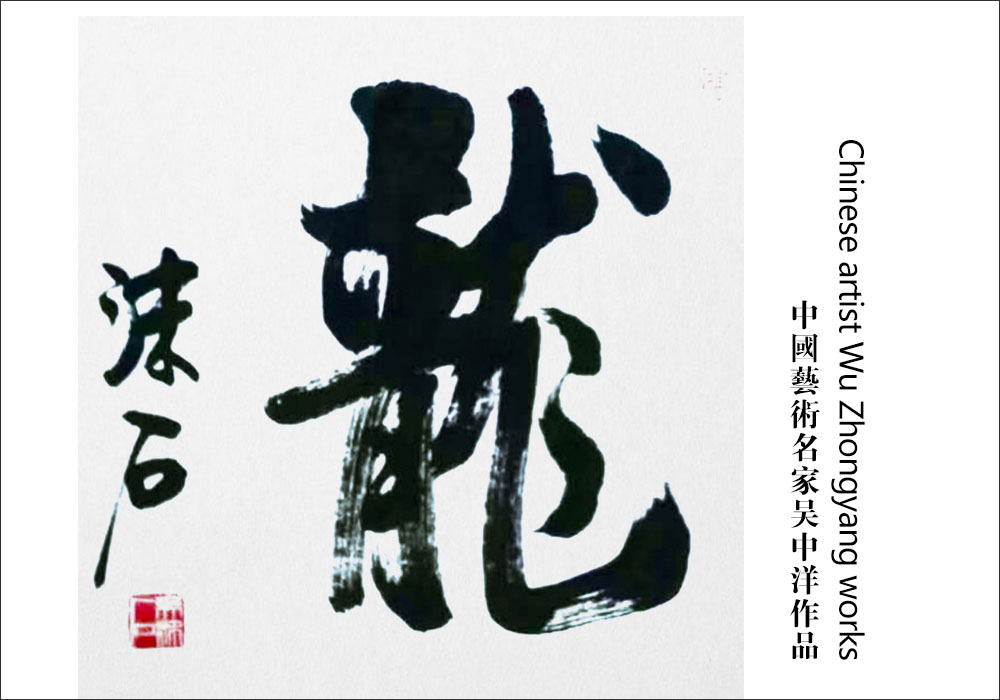 龍
涑石
Chinese artist Wu Zhongyang works
中國藝術名家吴中洋作品